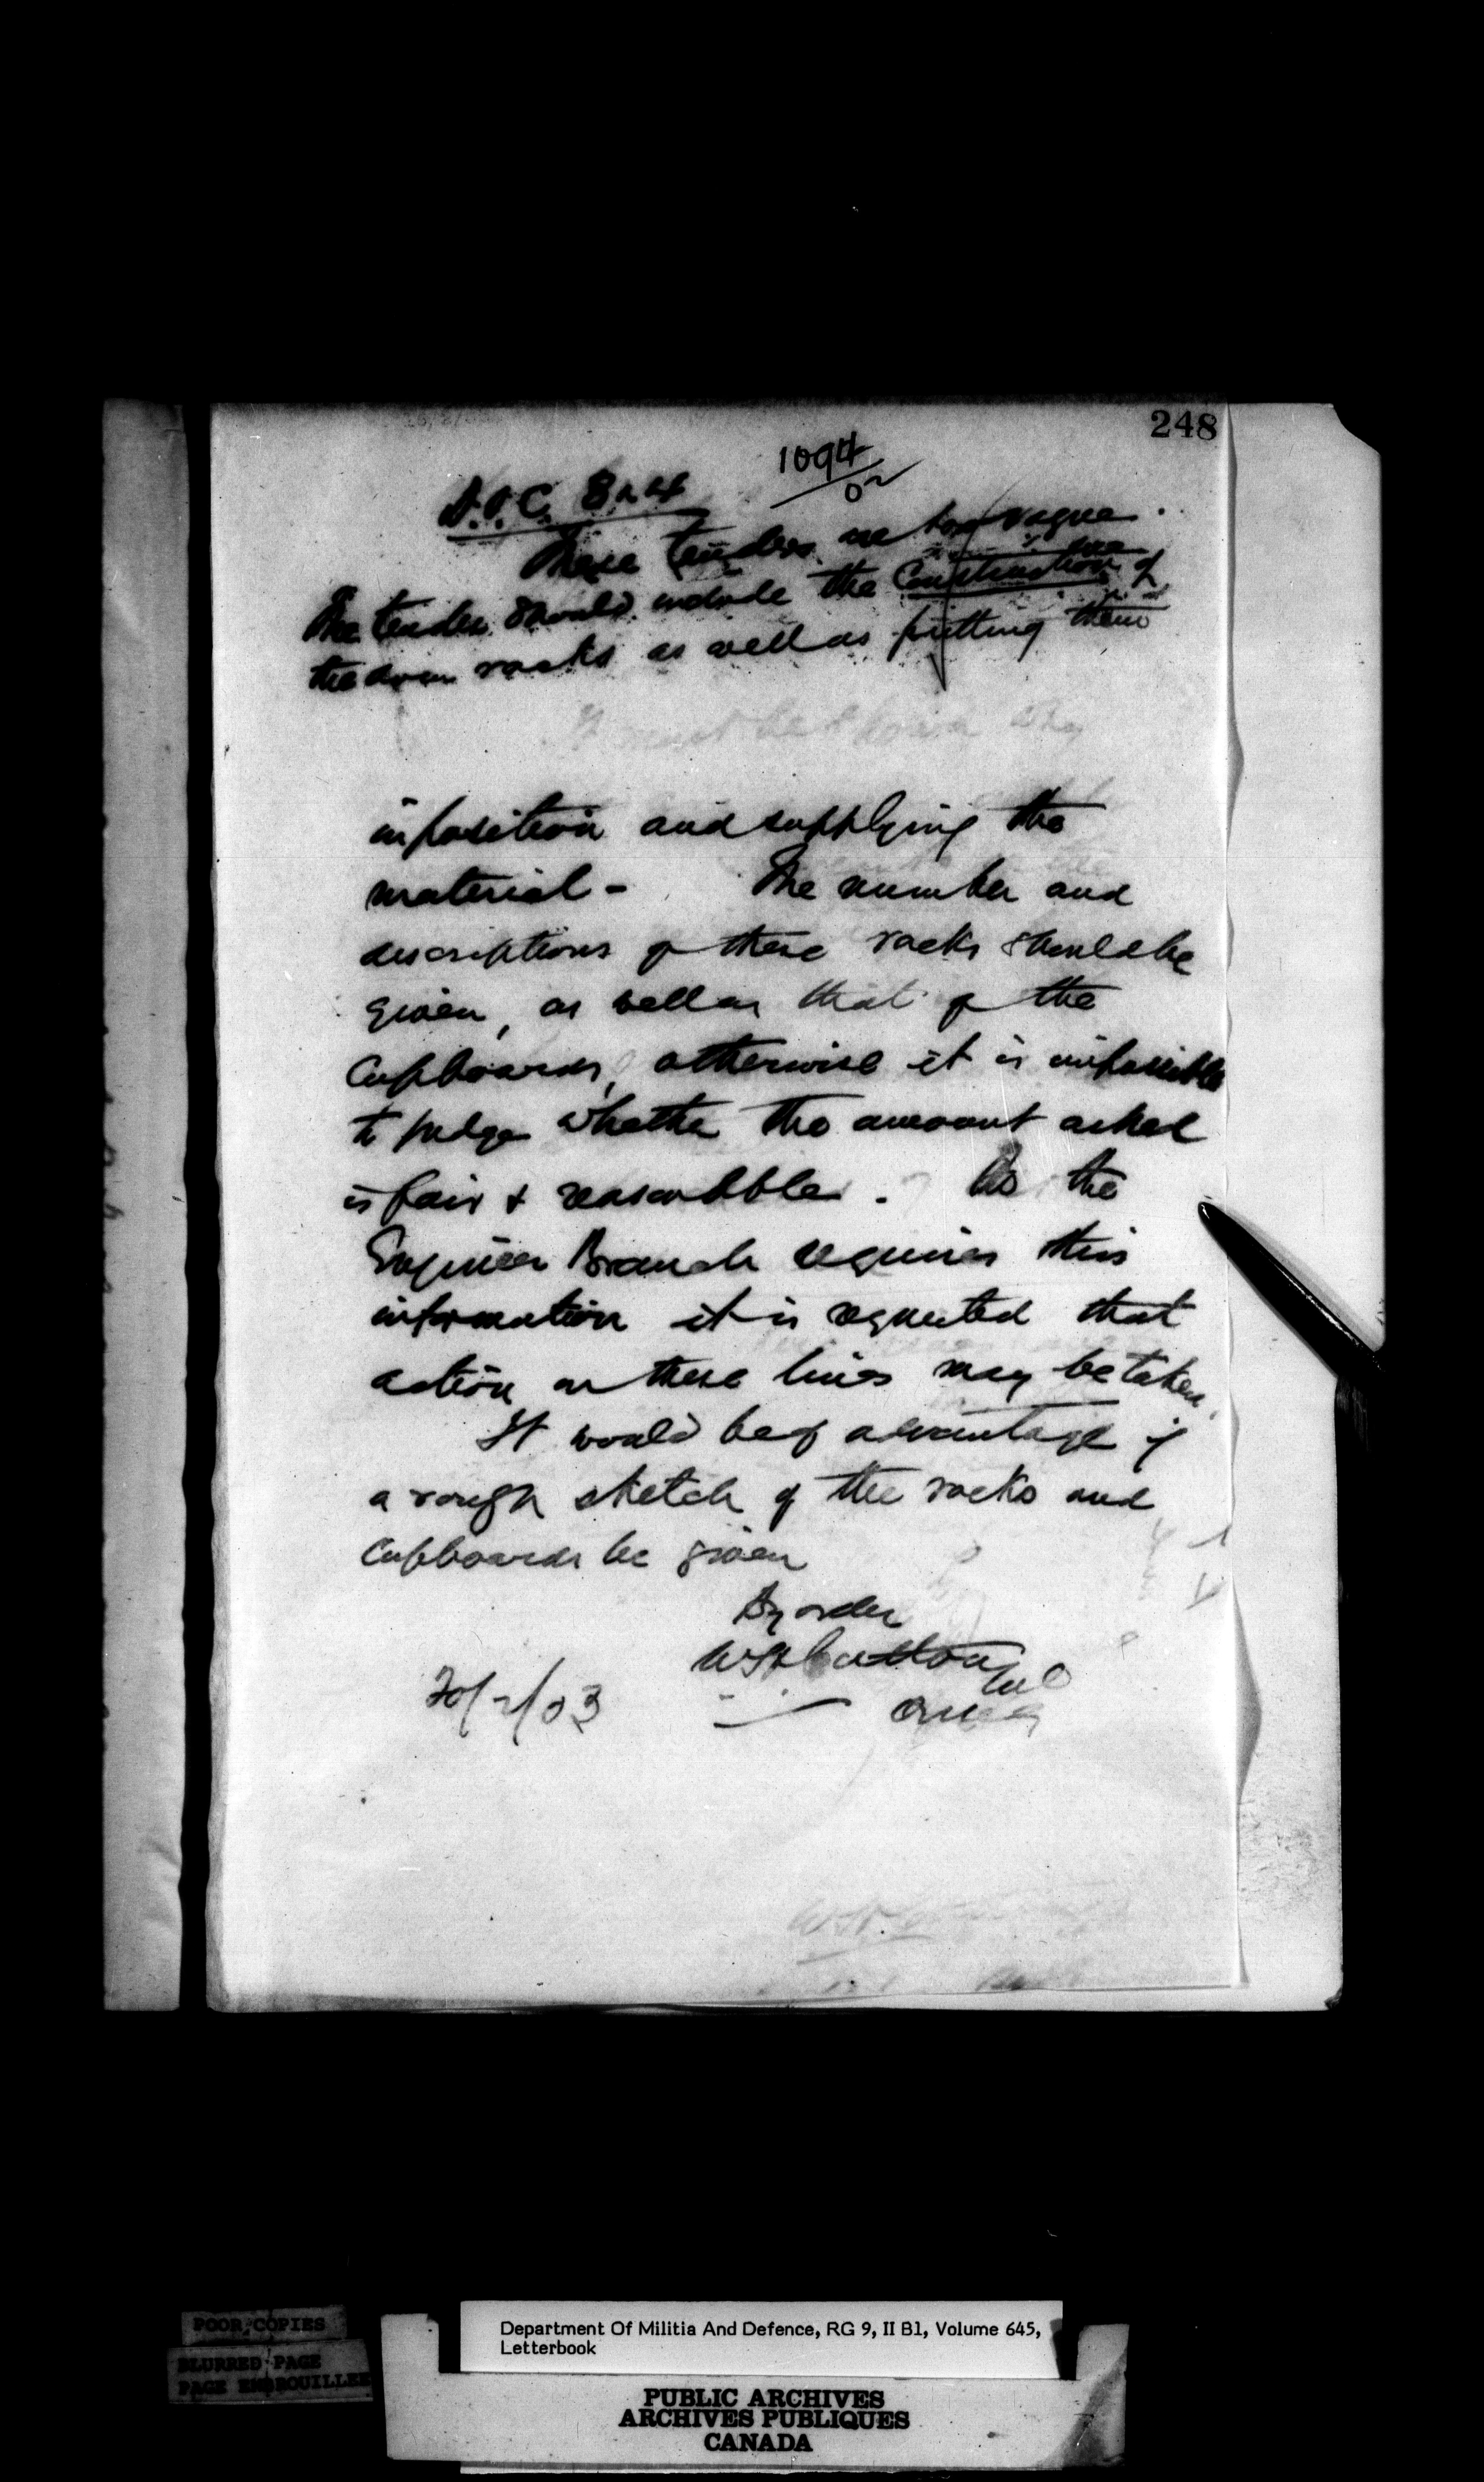 248
1094
02
D.O.C. 3 & 4
These tenders are too vague.
The tender should include the Construction of
the arm racks as well as putting them
in position and supplying the
material - The number and
descriptions of these racks should be
given, as well as that of the
Cupboards, otherwise it is impossible
to judge whether the amount asked
is fair & reasonable. As the
Engineer Branch requires this
information it is requested that
action on these lines may be taken.
It would be of advantage if
a rough sketch of the racks and
Cupboards be given
By order
Col
20/2/03
QMG
POOR COPIES
BLURRED PAGE
PAGE EMBROUILLEE
Department Of Militia And Defence, RG 9, II B1, Volume 645,
Letterbook
PUBLIC ARCHIVES
ARCHIVES PUBLIQUES
CANADA